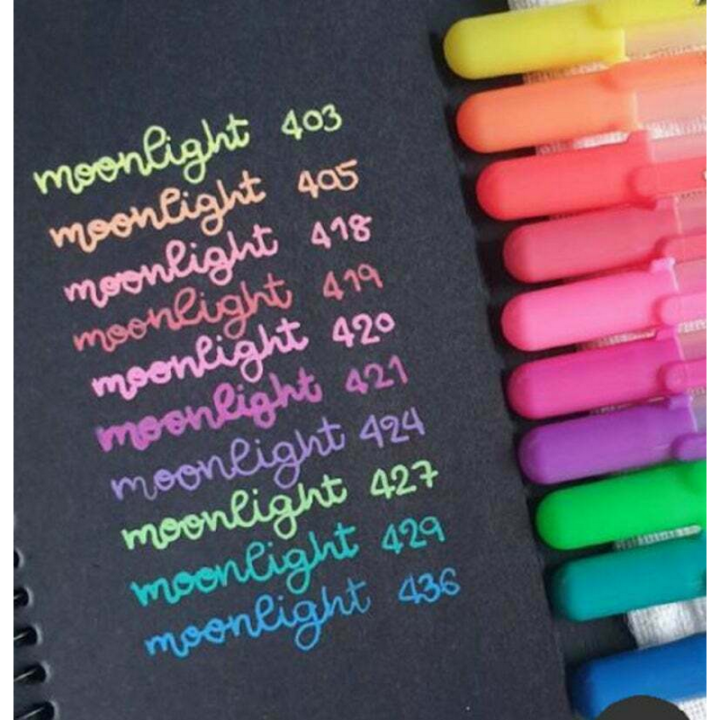 moonlight 403
moonlight 405
moonlight 418
moonlight 419
moonlight 420
moonlight 421
moonlight 424
moonlight 427
moonlight 429
moonlight 436